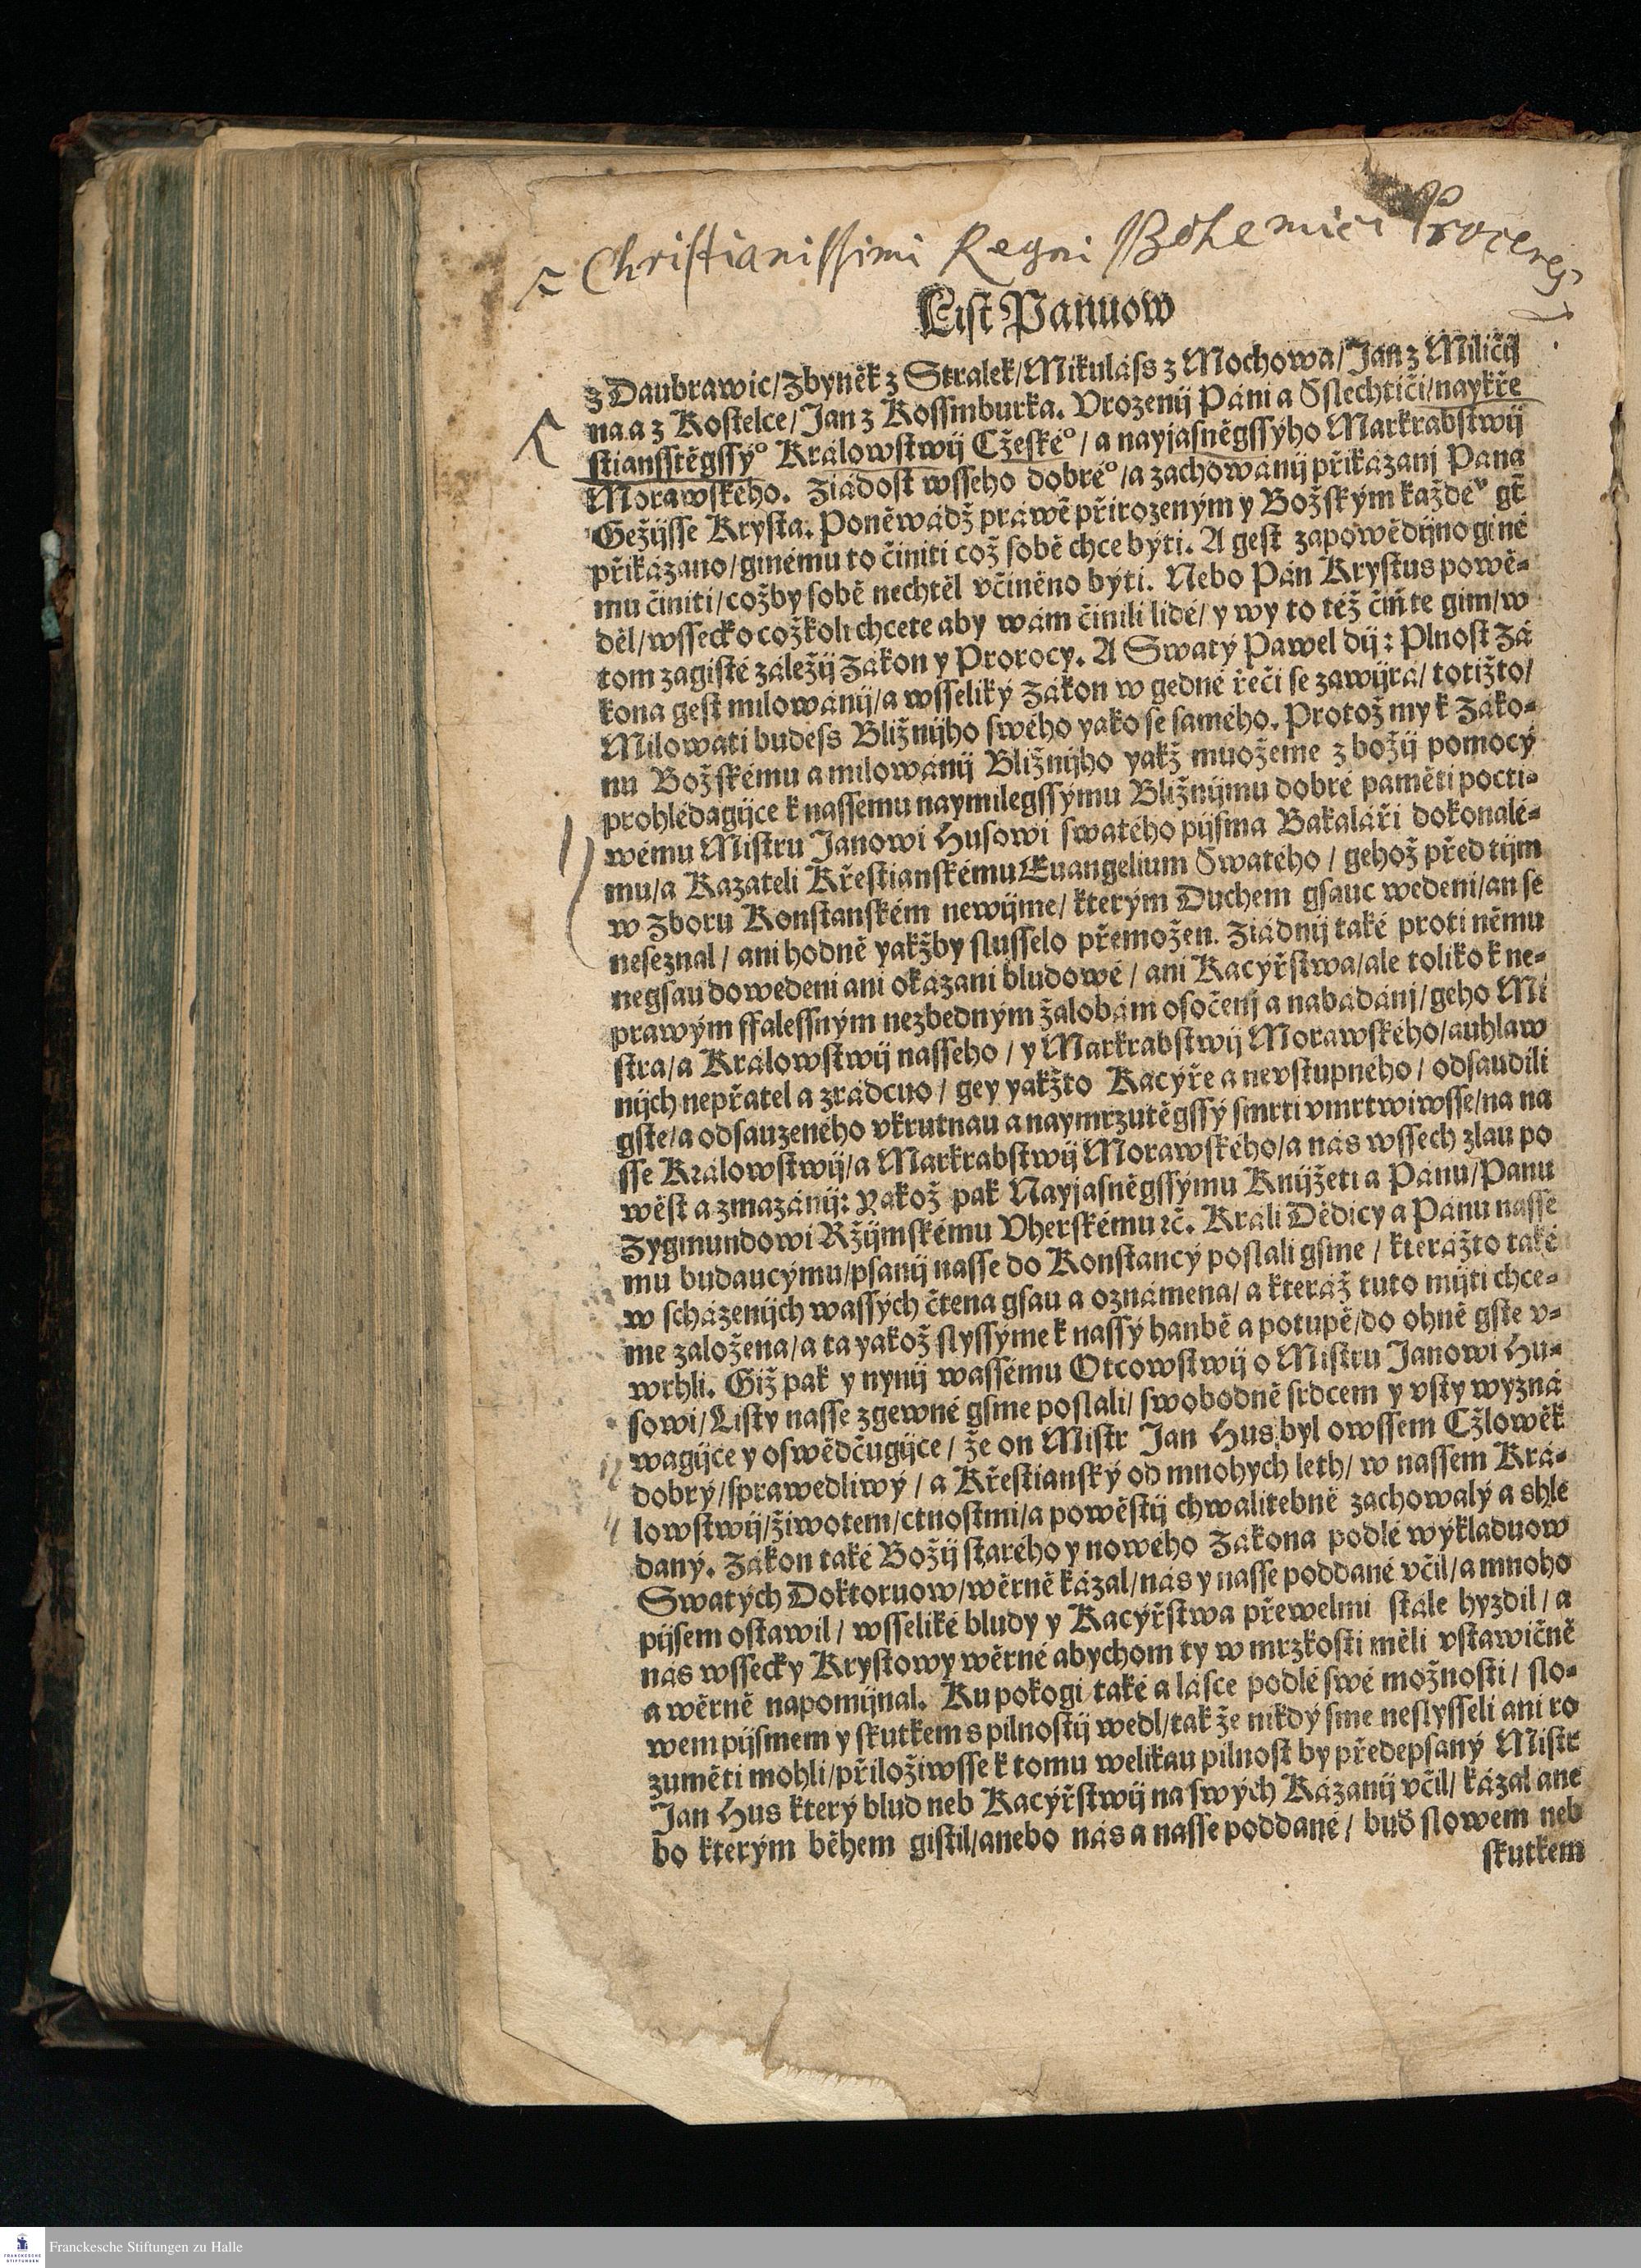 Christianissimi Regni Bohemici Proceres
List Panuow
z Daubrawic/Zbyněk z Stralek/Mikulass z Mochowa/Jan z Miličij
na a z Kostelce/Jan z Kossmburka. Vrozenij Páni a Sslechtici/naykře
stiansstěgssý° Králowstwij Cžeské°/a nayjasněgssýho Markrabstwij
Morawského. Ziádost wsseho dobré°/a zachowánij přikázanj Pana
Gežijsse Krysta. Poněwadž práwě přirozeným y Božským každéͮ gt̃
přikázano/ginému to činiti což sobě chce býti. A gest zapowědijno giné
mu činiti/cožby sobě nechtěl včiněno býti. Nebo Pán Krystus powě-
děl/wssecko cožkoli chcete aby wám činili lidé/ y wy to též čiňte gim/w
tom zagisté záležij Zákon y Prorocy. A Swatý Pawel dij: Plnost Zá
kona gest milowánij/a wsseliký Zákon w gedné řeči se zawijrá/ totižto/
Milowati budess Bližnijho swého yako se samého. Protož my k Záko-
nu Božskému a milowánij Bližnijho yakž muožeme z božij pomocý
prohlédagijce k nassemu naymilegssýmu Bližnijmu dobré paměti pocti-
wému Mistru Janowi Husowi swatého pijsma Bakaláři dokonalé-
mu/a Kazateli Křestianskému Euangelium Swatého / gehož před tijm
w Zboru Konstanském newijme/ kterým Duchem gsauc wedeni/an se
neseznal / ani hodně yakžby slusselo přemožen. Ziádnij také proti němu
negsau dowedeni ani okázani bludowé / ani Kacýřstwa/ale toliko k ne-
prawým ffalessným nezbedným žalobám osočenj a nabádánj/geho Mi
stra/a Králowstwij nasseho / y Markrabstwij Morawského/auhlaw
nijch nepřátel a zrádcuo / gey yakžto Kacýře a nevstupného / odsaudili
gste/a odsauzeného vkrutnau a naymrzutěgssý smrti vmrtwiwsse/na na
sse Králowstwij/a Markrabstwij Morawského/a nás wssech zlau po
wěst a zmazánij: yakož pak Nayjasněgssýmu Knijžeti a Pánu/Panu
Zygmundowi Ržijmskému Vherskému ꝛč. Králi Dědicy a Pánu nasse
mu budaucýmu/psanij nasse do Konstancý poslali gsme / kterážto také
w scházenijch wassých čtena gsau a oznámena/ a kteráž tuto mijti chce-
me založena/a ta yakož slyssýme k nassý hanbě a potupě/do ohně gste v-
wrhli. Giž pak y nynij wassemu Otcowstwij o Mistru Janowi Hu-
sowi/Listy nasse zgewné gsme poslali/ swobodně srdcem y vsty wyzná
wagijce y oswědčugijce / že on Mistr Jan Hus byl owssem Cžlowěk
dobrý/sprawedliwý / a Křestianský od mnohých leth/ w nassem Krá-
lowstwij/žiwotem/ctnostmi/a powěstij chwalitebně zachowalý a shle
daný. Zákon také Božij starého y nowého Zákona podlé wýkladuow
Swatých Doktoruow/wěrně kázal/nás y nasse poddané včil/a mnoho
pijsem ostawil/ wsseliké bludy y Kacýřstwa přewelmi stále hyzdil/ a
nás wssecky Krystowy wěrné abychom ty w mrzkosti měli vstawičně
a wěrně napomijnal. Ku pokogi také a lásce podlé swé možnosti/ slo-
wem pijsmem y skutkem s pilnostij wedl/tak že nikdý sme neslysseli ani ro
zuměti mohli/přiložiwsse k tomu welikau pilnost by předepsaný Mistr
Jan Hus který blud neb Kacýřstwij na swých Kázanij včil/ kázal ane
bo kterým během gistil/anebo nás a nasse poddané / buď slowem neb
skutkem
Franckesche Stiftungen zu Halle